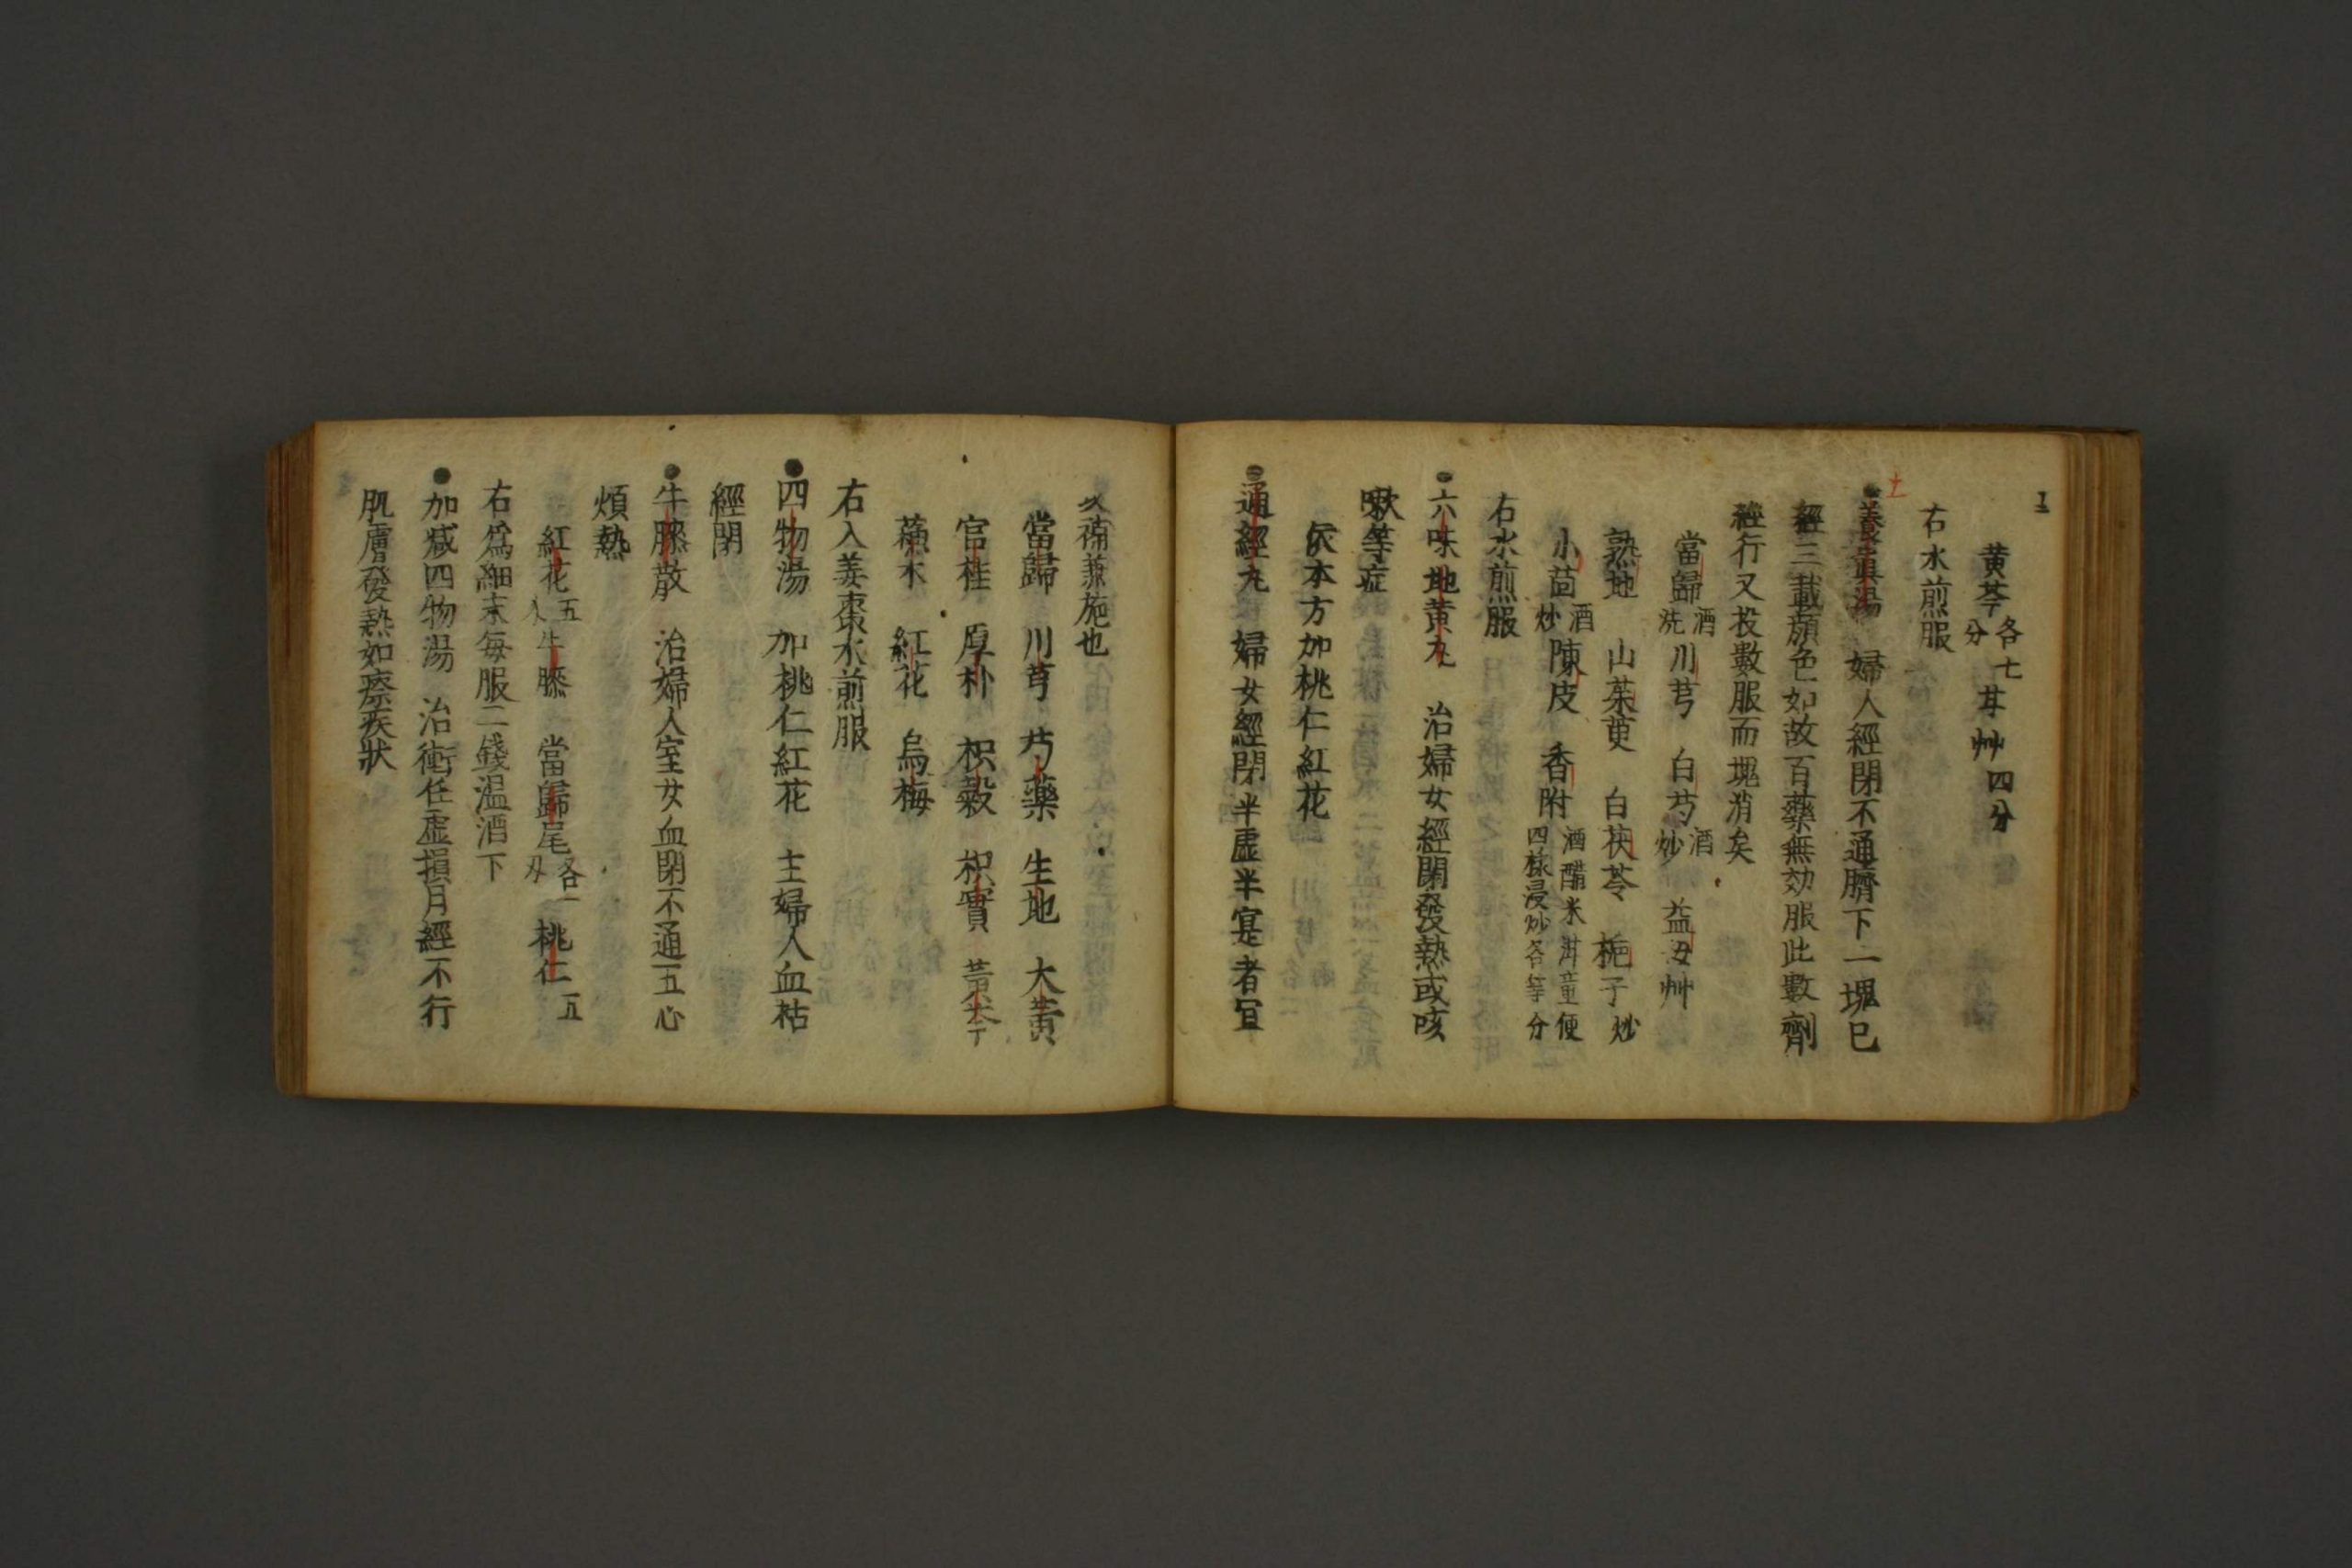 黄芩各七分 甘艸四分
右水煎服
養眞湯 婦人經閉不通臍下一塊已
經三載顔色如故百藥無効服此數劑
經行又投數服而塊消矣
當歸酒洗 川芎 白芍酒炒 益母艸
熟地 山茱萸 白茯苓 梔子炒
小茴酒炒 陳皮 香附酒醋米泔童便四樣浸炒各等分
右水煎服
六味地黄丸 治婦女經閉發熱或咳
嗽等症
依本方加桃仁紅花
通經丸 婦女經閉半虚半寔者宜
攻補兼施也
當歸 川芎 芍藥 生地 大黄
官桂 厚朴 枳殻 枳實 黄芩
蘓木 紅花 烏梅
右入姜棗水煎服
四物湯 加桃仁紅花 主婦人血枯
經閉
牛膝散 治婦人室女血閉不通五心
煩熱
紅花五 牛膝 當歸尾各一 桃仁五
右爲細末毎服二錢温酒下
加減四物湯 治衝任虚損月經不行
肌膚發熱如瘵疾狀